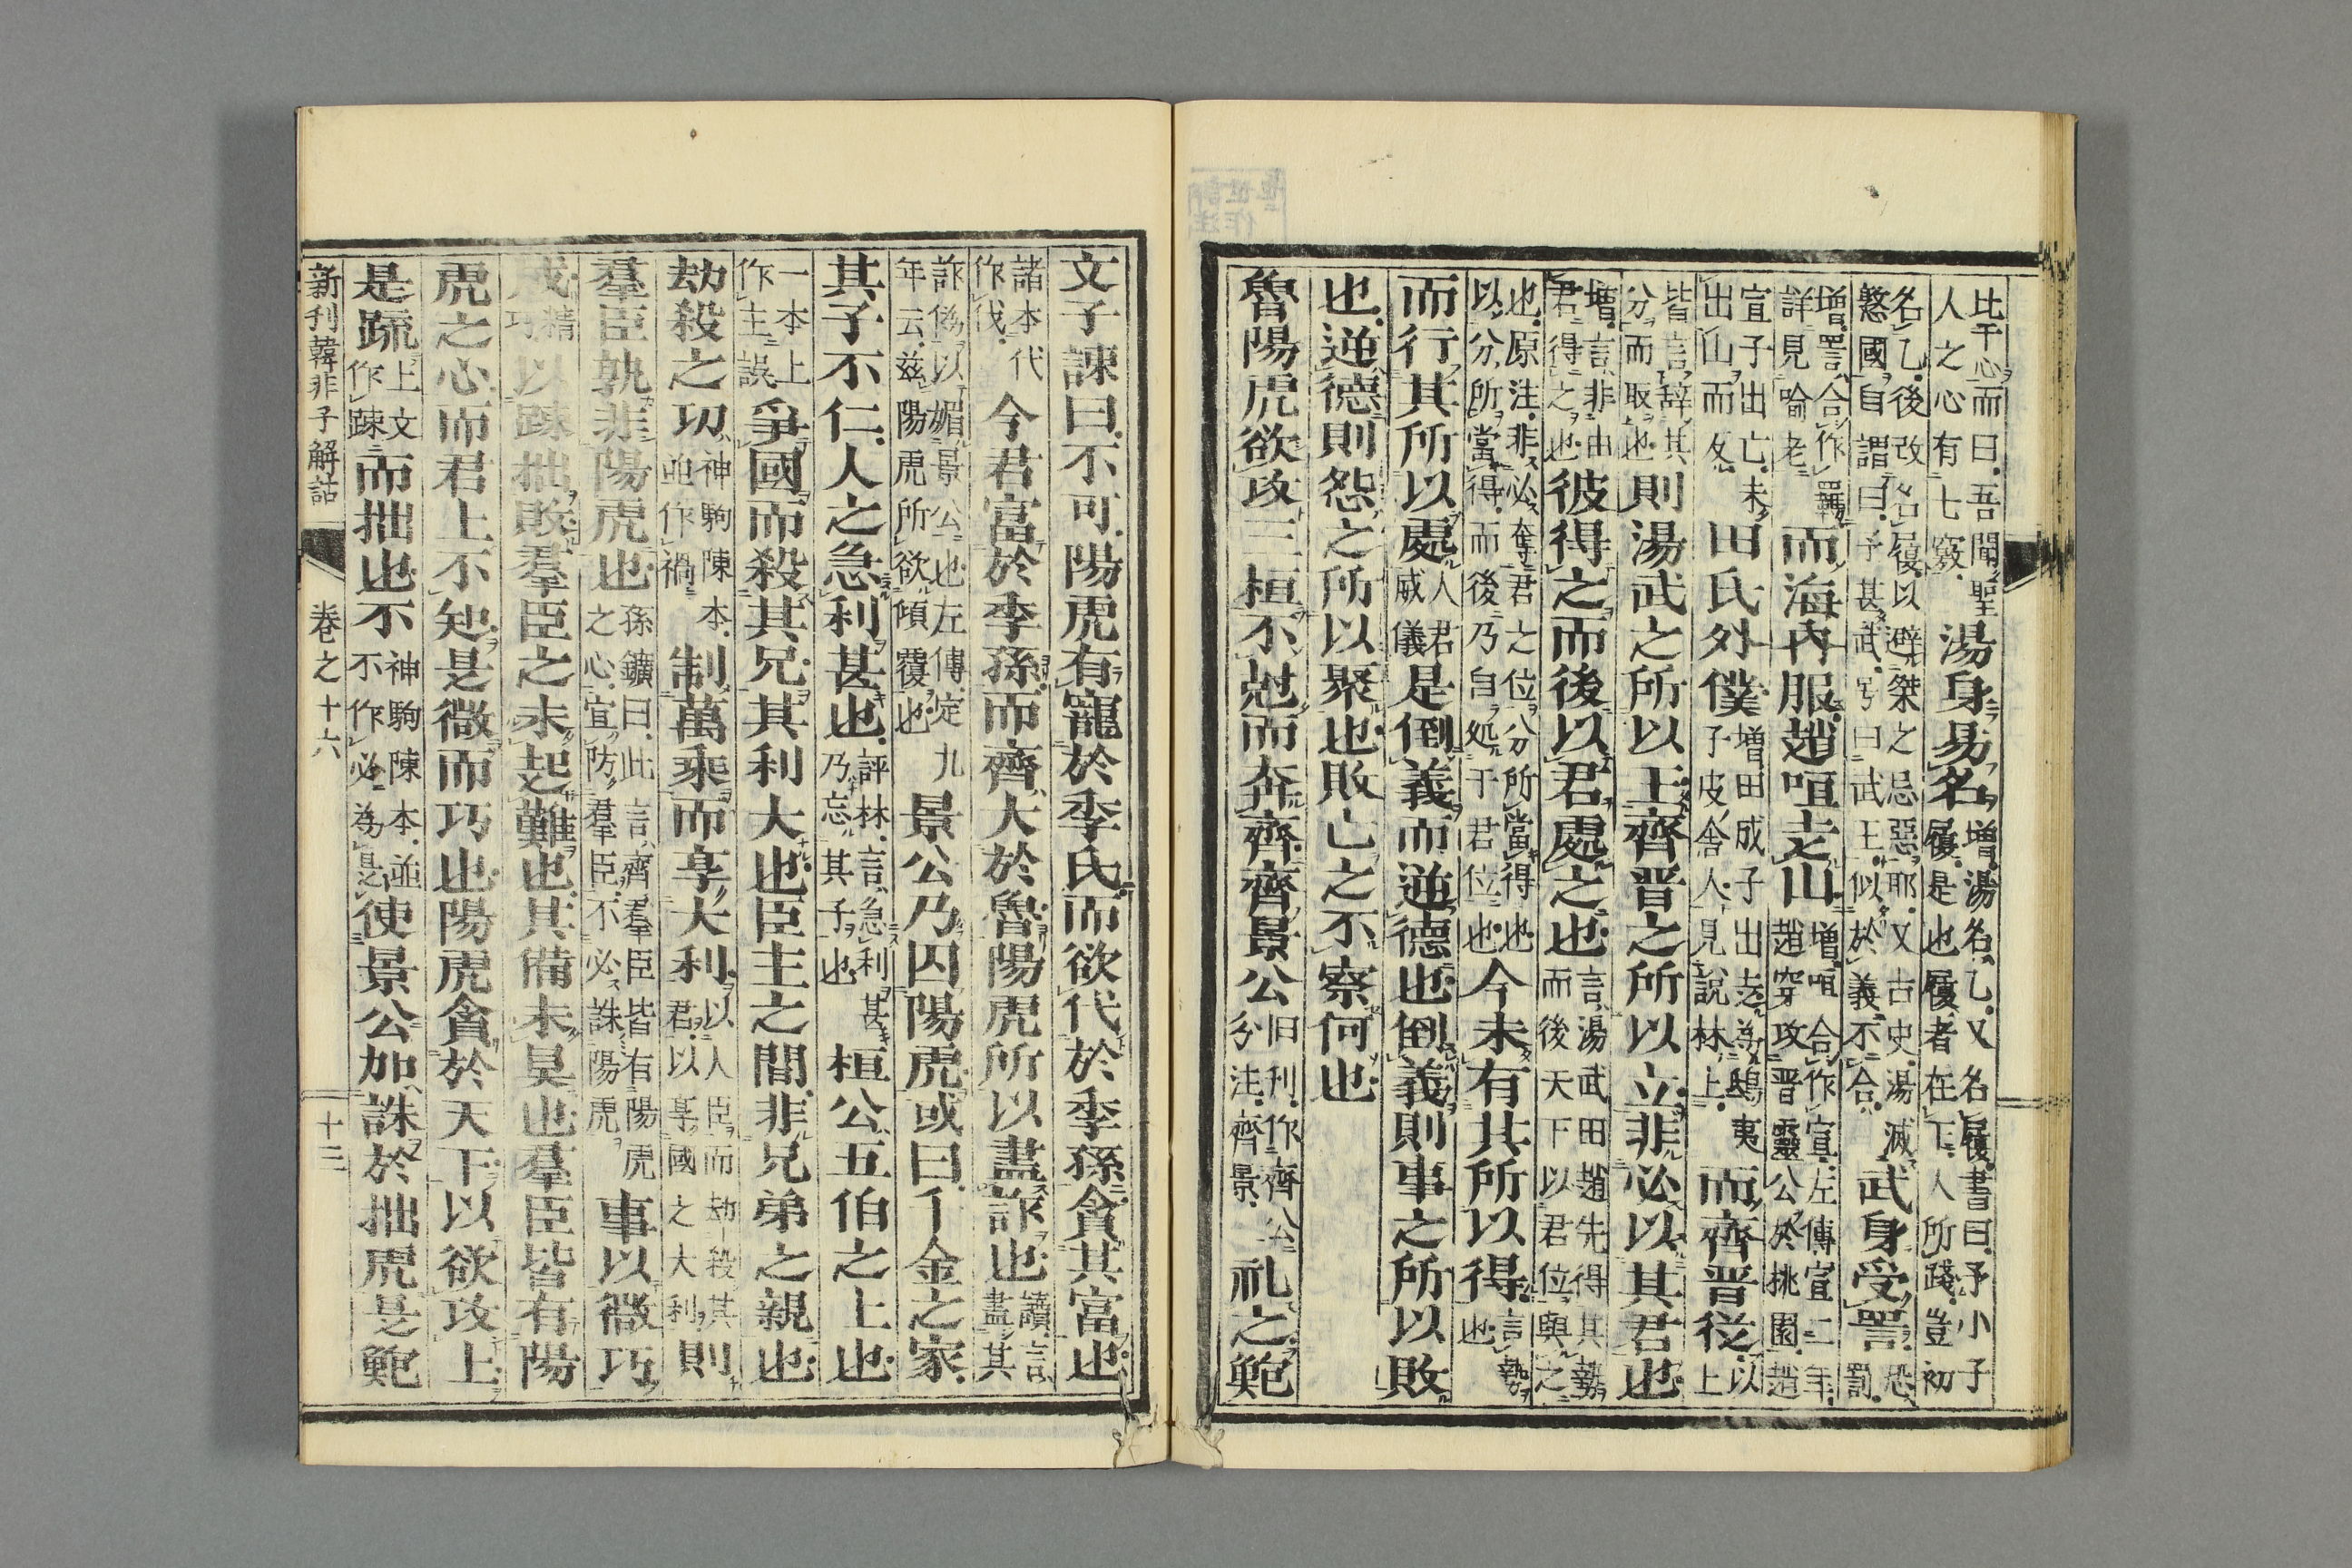 比干心而曰吾聞聖人之心有七竅湯身易名增湯名乙又名履書曰予小子履是也履者在下人所踐豈初
名乙後改名履以避桀之忌惡耶又古史湯滅慜國自謂曰予甚武号曰武王似於義不合武身受詈恐罰
增詈合作羈詳見喻老而海內服趙咺走山增咺合作宣左傳宣二年趙穿攻晋靈公於桃園趙
宣子出亡未出山而田氏外僕增田成子出走為鴟夷子皮舍人見說林上而齊晋従以上
皆言辞其分而取也則湯武之所以王齊晋之所以立非必以其君也
增言非由君得之也彼得之而後以君處之也言湯武田趙先得其勢而後天下以君位與之
也原注非必奪君之位分所當得也以分所當得而後乃自処于君位也今未有其所以得言勢也
而行其所以處人君威儀是倒義而逆德也倒義則事之所以敗
也逆德則怨之所以聚也敗亡之不察何也
魯陽虎欲攻三桓不尅而奔齊齊景公旧刊作齊公分注齊景礼之鮑
文子諫曰不可陽虎有寵於季氏而欲代於季孫貪其富也
諸本代作伐今君富於季孫而齊大於魯陽虎所以盡詐也讀言盡其
詐偽以媚景公也左傳定九年云茲陽虎所欲傾覆也景公乃囚陽虎或曰千金之家
其子不仁人之急利甚也評林言急利甚乃忘其子也桓公五伯之上也
一本上作主誤爭國而殺其兄其利大也臣主之間非兄弟之親也
劫殺之功神駒陳本並作禍制萬乘而享大利以人臣而劫殺其君以享國之大利則
羣臣孰非陽虎也孫鑛曰此言齊羣臣皆有陽虎之心宜防羣臣不必誅陽虎事以微巧
成精巧以踈拙敗羣臣之未起難也其備未具也羣臣皆有陽
虎之心而君上不知是微而巧也陽虎貪於天下以欲攻上
是疏上文作踈而拙也不神駒陳本並不作必為是使景公加誅於拙虎是鮑
新刊韓非子解詁 卷之十六 十三